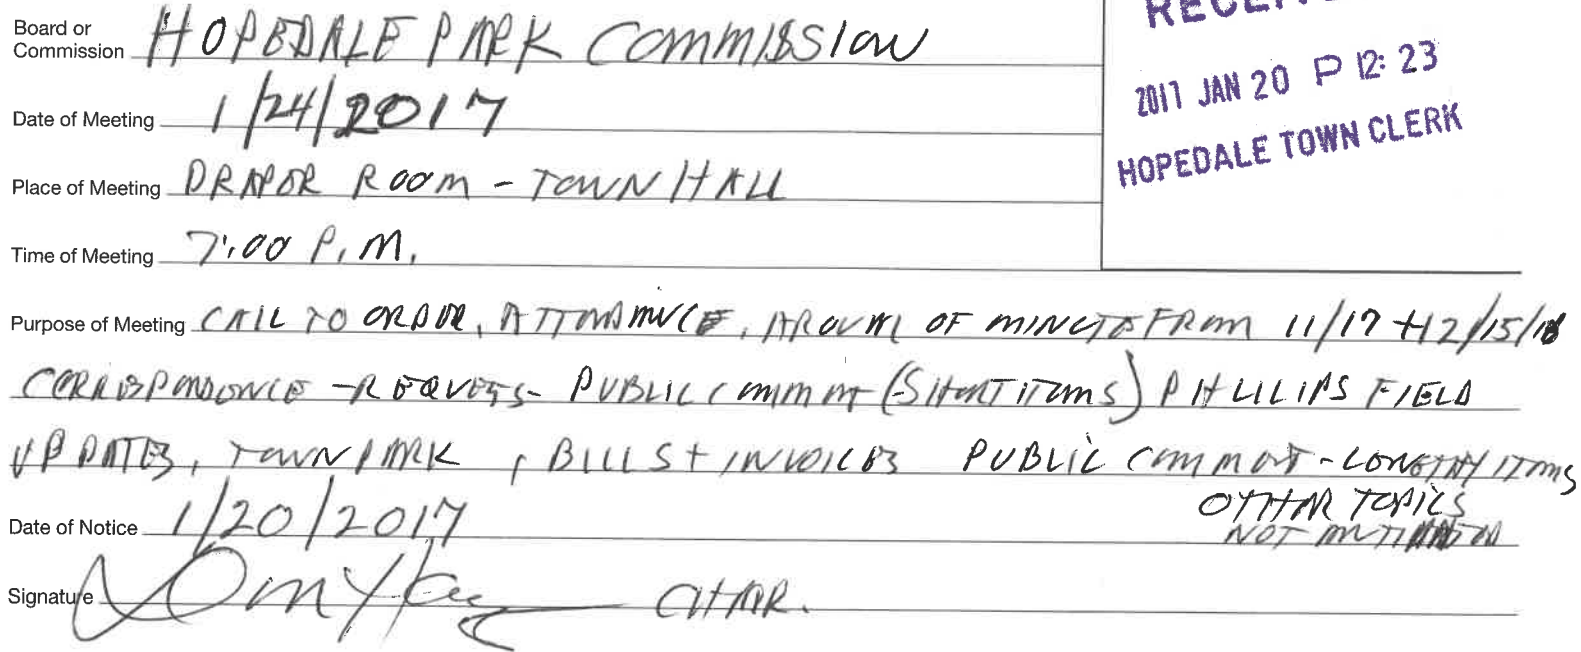 RECEIVED
2017 JAN 20 P 12: 23
HOPEDALE TOWN CLERK
Board or
Commission HOPEDALE PARK COMMISSION
Date of Meeting 1/24/2017
Place of Meeting DRAPER ROOM - TOWN HALL
Time of Meeting 7:00 P.M.
Purpose of Meeting CALL TO ORDER, ATTENDANCE, AROVAL OF MINUTES FROM 11/17 + 12/15/16
CORRESPONDENCE - REQUESTS - PUBLIC COMMENT (SHORT ITEMS) PHILLIPS FIELD
UPDATES, TOWN PARK, BILLS + INVOICES PUBLIC COMMENT - LENGTHY ITEMS
OTHER TOPICS
NOT ANTICIPATED
Date of Notice 1/20/2017
Signature CHAIR.